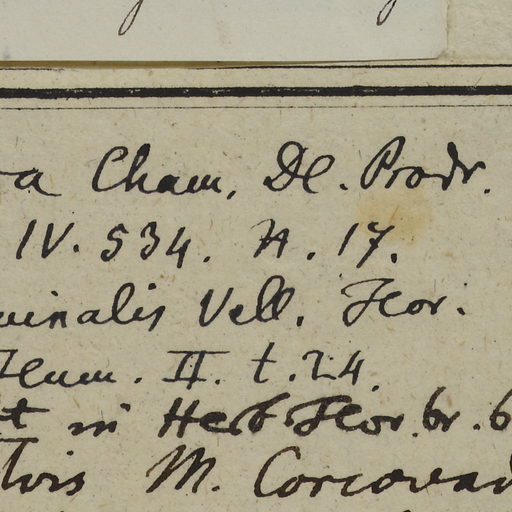 a Cham. DC. Prodr.
IV. 534. N. 17.
uinalis Vell. Flor.
Flum. II. t. 24.
t in Herb. Flor. br. 6
M. Corcovad